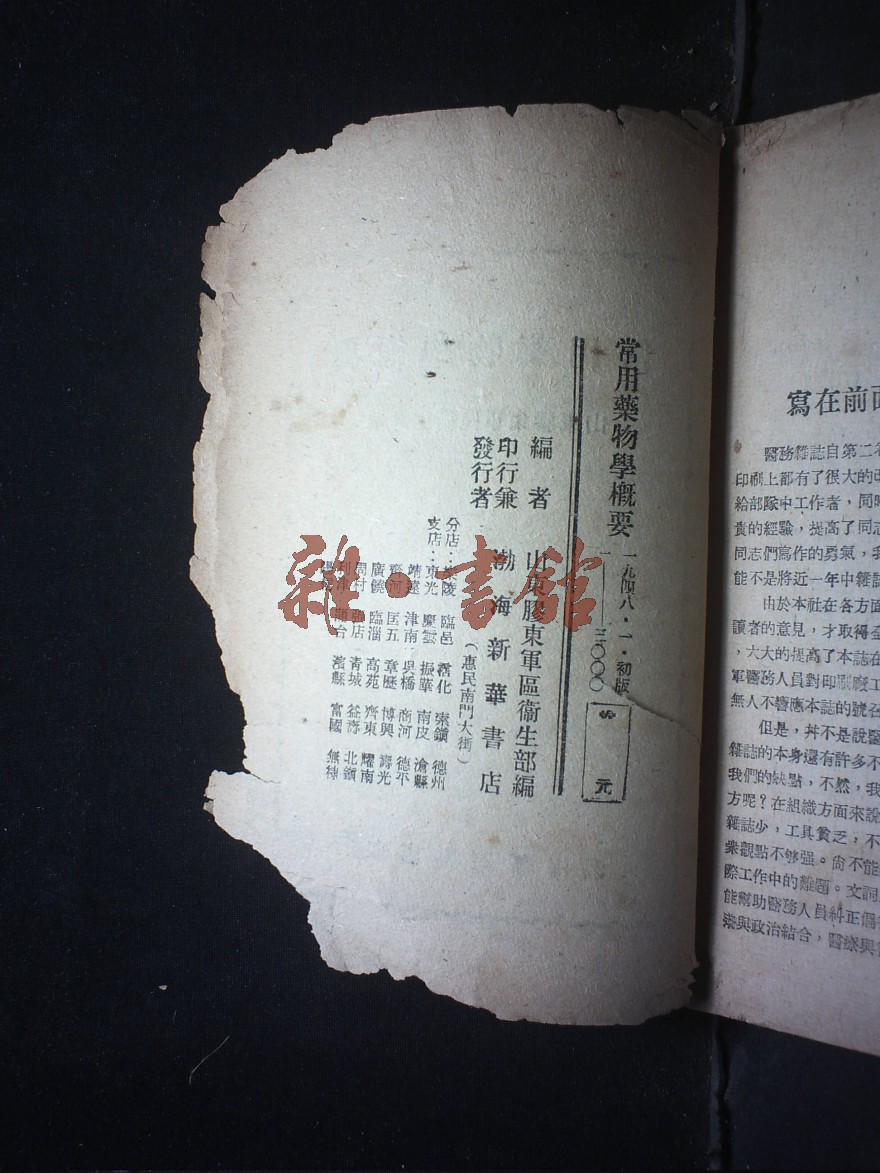 常用藥物學概要
一九四八・一・初版
一——三〇〇〇
元
編者 山東膠東軍區衞生部編
印行兼
發行者 渤海新華書店
(惠民南門大街)
分店:樂陵 臨邑 霑化 索鎮 德州
支店:東光 慶雲 振華 南皮 滄縣
靖遠 津南 吳橋 商河 德平
齊河 匡五 章歷 博興 壽光
廣饒 臨淄 高苑 齊東 耀南
周村 張店 青城 益壽 北鎮
利津 濱縣 富國 無棣
雜・書館
寫在前
醫務雜誌自第二
印刷上都有了很大的
給部隊中工作者,同時
貴的經驗,提高了同志
同志們寫作的勇氣,我
能不是將近一年中雜誌
由於本社在各方面
讀者的意見,才取得
,大大的提高了本誌在
軍醫務人員對印刷廠工
無人不響應本誌的號
但是,並不是說醫
雜誌的本身還有許多不
我們的缺點,不然,我
方呢?在組織方面來說
雜誌少,工具貧乏,不
衆觀點不够强。尙不能
際工作中的難題。文詞
能幫助醫務人員糾正個
業與政治結合,醫療與